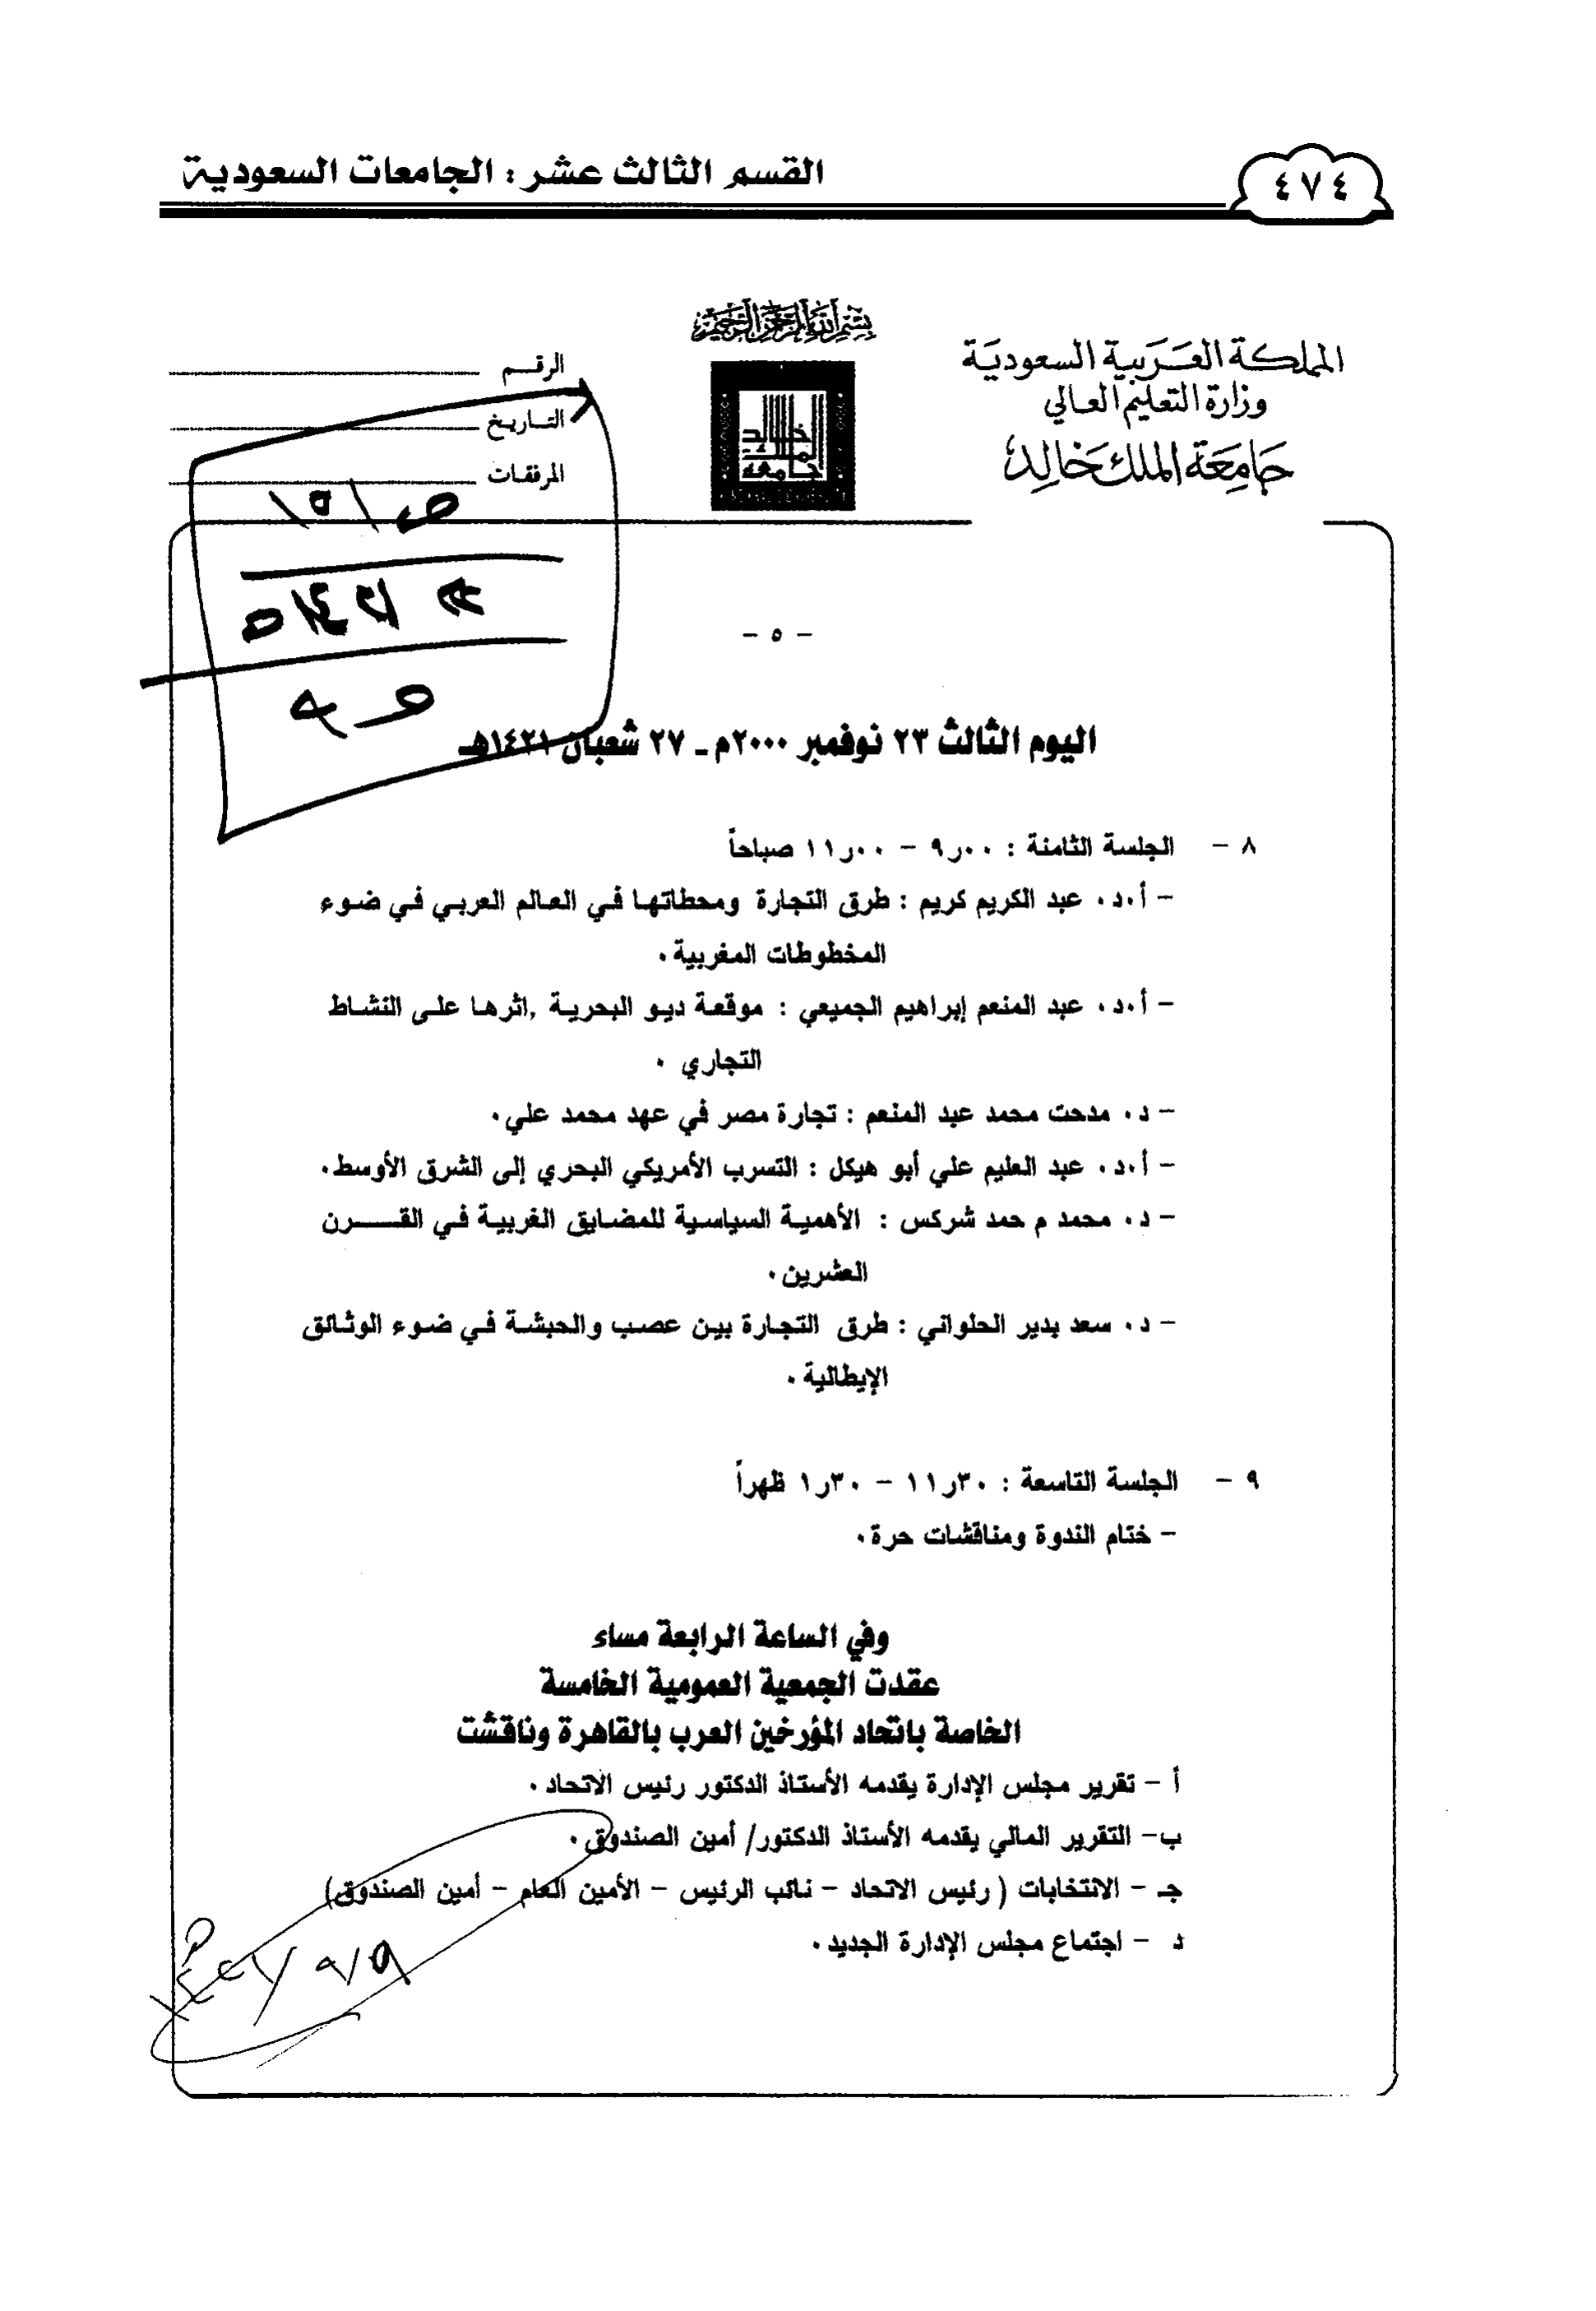 القسم الثالث عشر : الجامعات السعودية
٤٧٤
بسم الله الرحمن الرحيم
المملكة العربية السعودية
وزارة التعليم العالي
جامعة الملك خالد
جامعة الملك خالد
الرقم
التاريخ
المرفقات
- ٥ -
اليوم الثالث ٢٣ نوفمبر ٢٠٠٠م ـ ٢٧ شعبان ١٤٢١هـ
٨ - الجلسة الثامنة : ٩٫٠٠ - ١١٫٠٠ صباحاً
- أ.د. عبد الكريم كريم : طرق التجارة ومحطاتها في العالم العربي في ضوء
المخطوطات المغربية.
- أ.د. عبد المنعم إبراهيم الجميعي : موقعة ديو البحرية ,اثرها على النشاط
التجاري .
- د. مدحت محمد عبد المنعم : تجارة مصر في عهد محمد علي.
- أ.د. عبد العليم علي أبو هيكل : التسرب الأمريكي البحري إلى الشرق الأوسط.
- د. محمد م حمد شركس : الأهمية السياسية للمضايق الغربية في القــــرن
العشرين.
- د. سعد بدير الحلواني : طرق التجارة بين عصب والحبشة في ضوء الوثائق
الإيطالية .
٩ - الجلسة التاسعة : ١١٫٣٠ - ١٫٣٠ ظهراً
- ختام الندوة ومناقشات حرة.
وفي الساعة الرابعة مساء
عقدت الجمعية العمومية الخامسة
الخاصة باتحاد المؤرخين العرب بالقاهرة وناقشت
أ - تقرير مجلس الإدارة يقدمه الأستاذ الدكتور رئيس الاتحاد .
ب- التقرير المالي يقدمه الأستاذ الدكتور/ أمين الصندوق.
جـ - الانتخابات ( رئيس الاتحاد - نائب الرئيس - الأمين العام - أمين الصندوق)
د - اجتماع مجلس الإدارة الجديد .